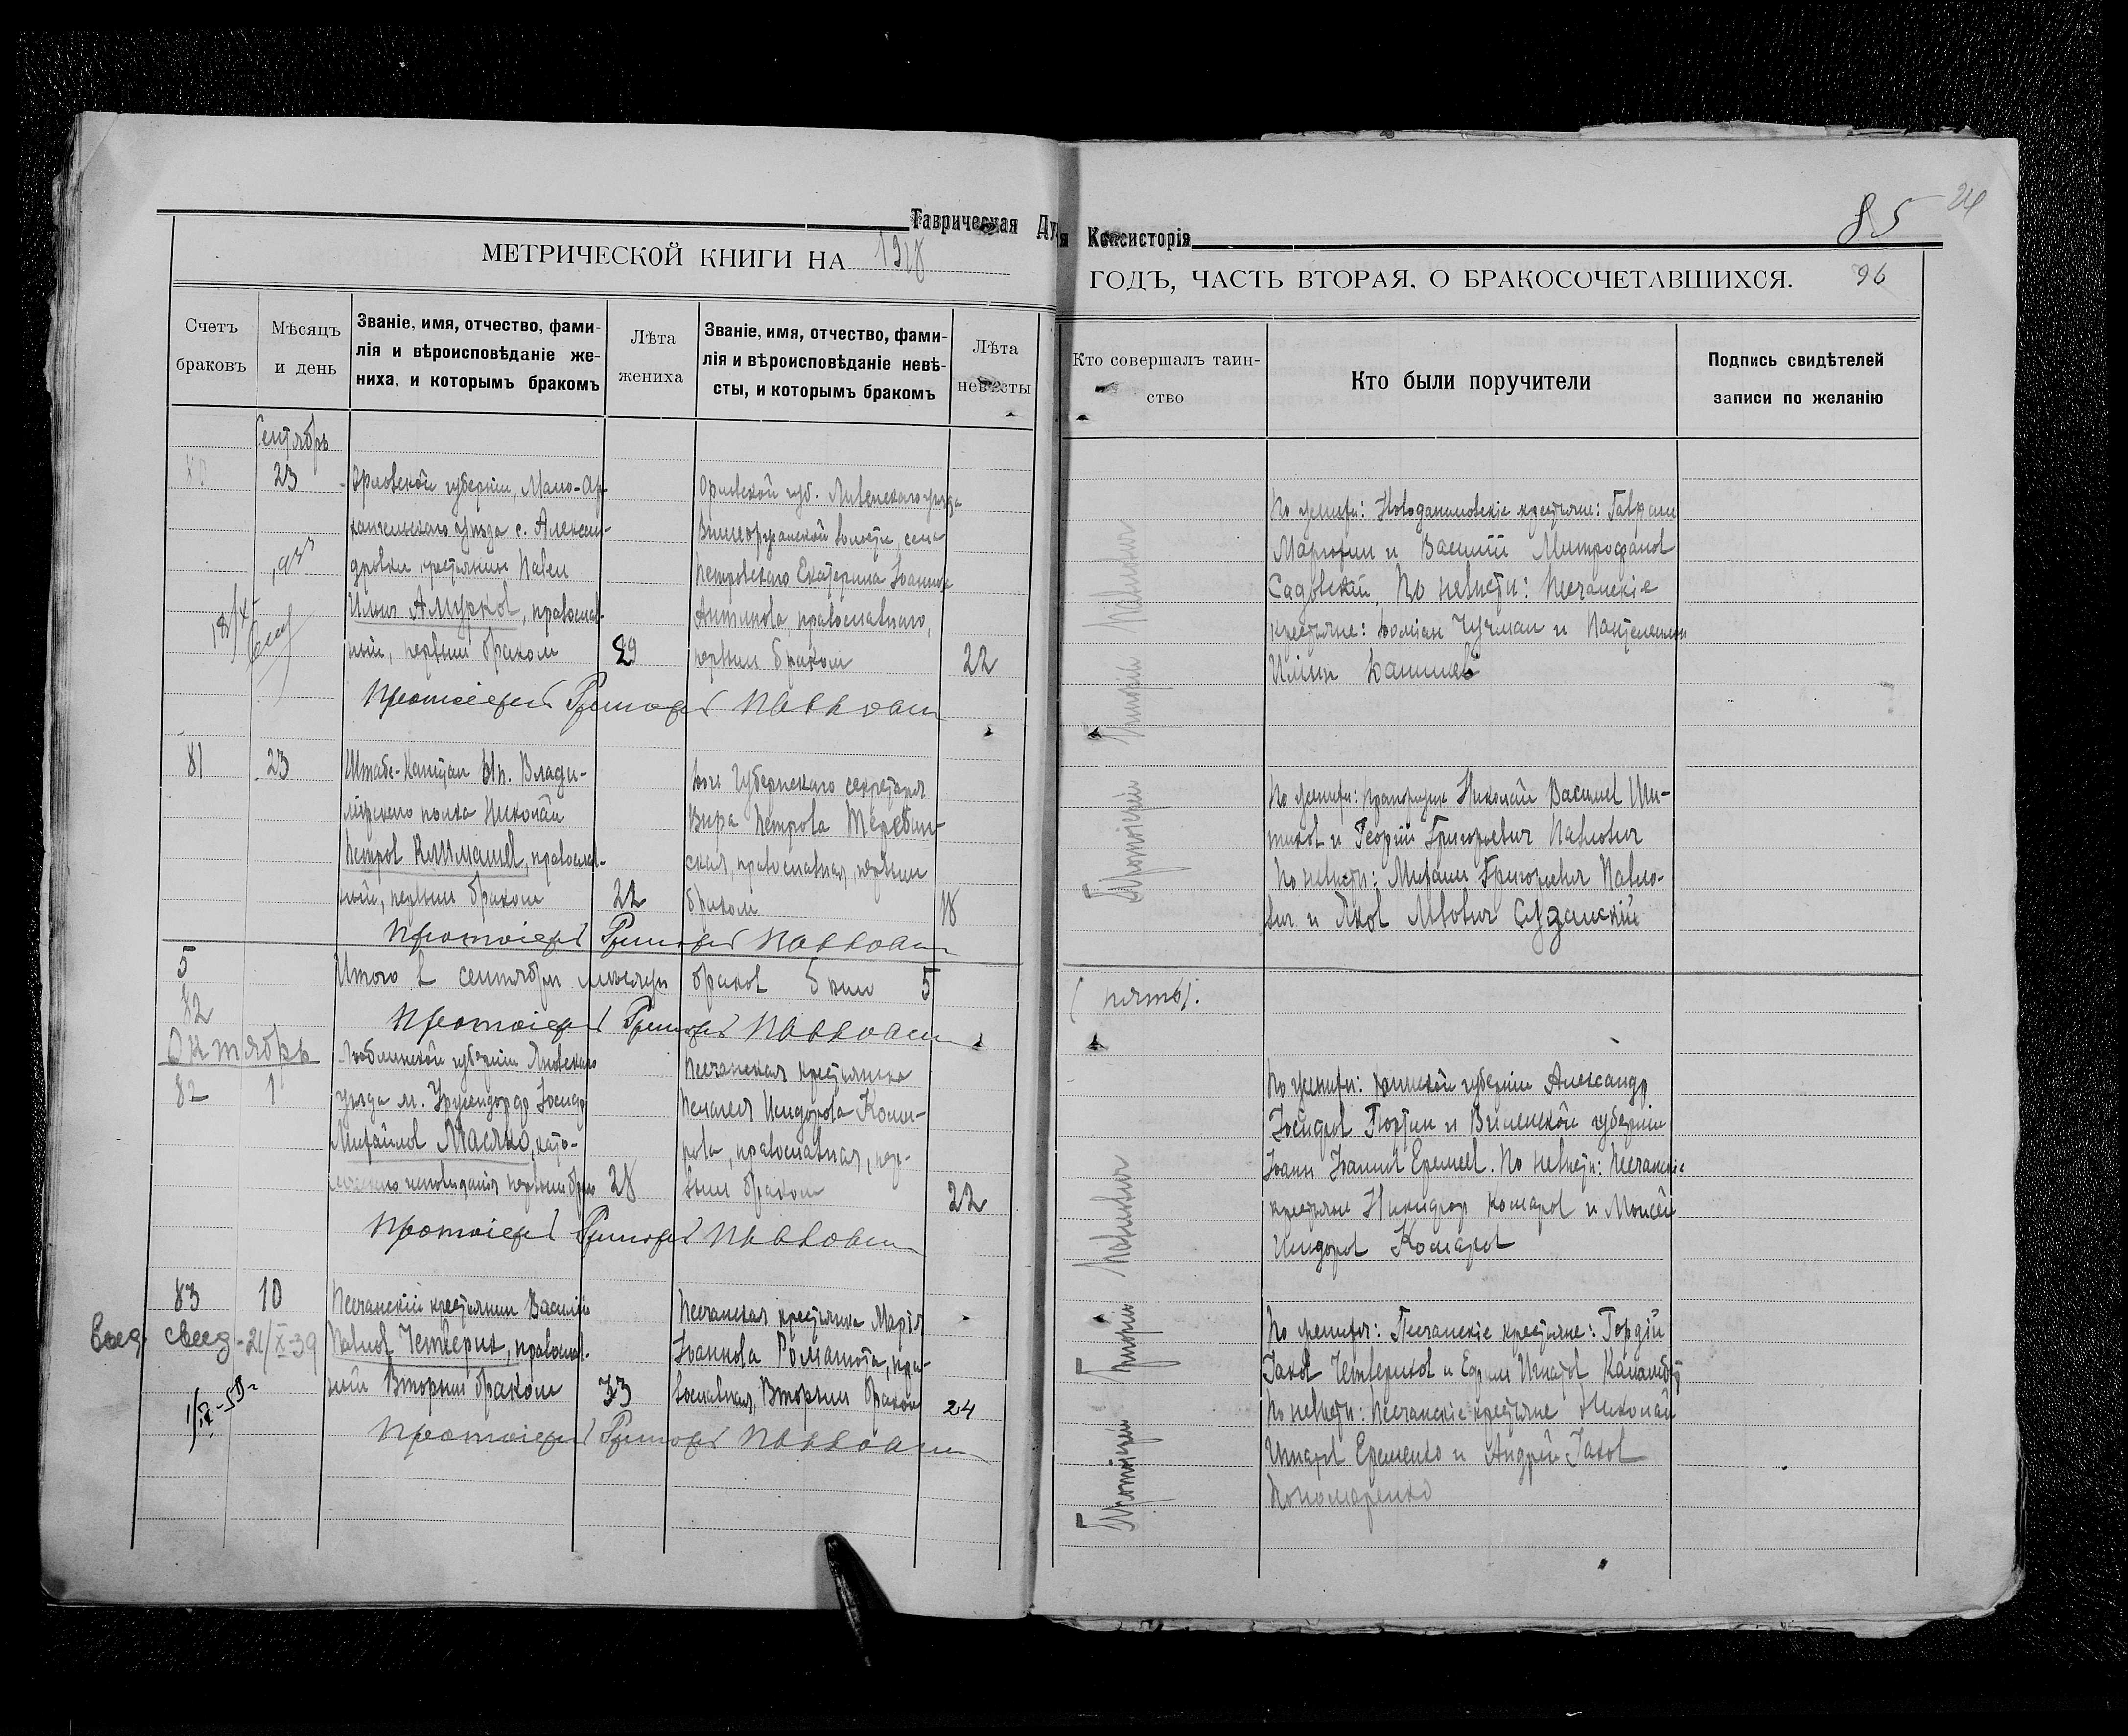 Таврическая Ду
я Консисторія
85
24
МЕТРИЧЕСКОЙ КНИГИ НА 1918
ГОДЪ, ЧАСТЬ ВТОРАЯ, О БРАКОСОЧЕТАВШИХСЯ.
96
Счетъ браковъ
Мѣсяцъ и день
Званіе, имя, отчество, фами-
лія и вѣроисповѣданіе же-
ниха, и которымъ бракомъ
Лѣта жениха
Званіе, имя, отчество, фами-
лія и вѣроисповѣданіе невѣ-
сты, и которымъ бракомъ
Лѣта невѣсты
Кто совершалъ таин-
ство
Кто были поручители
Подпись свидѣтелей
записи по желанію
Сентябрь
23
Орловской губерніи, Мало-Ар-
хангельскаго уѣзда с. Алексан-
дровки, крестьянин Павел
Ильич Амурков, православ-
ный, первым браком
29
Орловской губ. Ливенскаго уѣзда
волости села
Петровскаго Екатерина Іоаннова
Антипова православнаго,
первым браком
22
Протоіерей Григорій Павлович
По женихѣ: Новоданиловскіе крестьяне: Гавриил
и Василій Митрофанов
Садовскій. По невѣстѣ: Песчанскіе
крестьяне: и Пантелеимон
Ильин
81
23
Штабс-Капитан Влади-
мірскаго полка Николай
Петров Климашев, православ-
ный, первым браком
22
Дочь Губернскаго секретаря
Вѣра Петрова Теребин-
ская, православная, первым
браком
18
Протоіерей Григорій Павлович
По женихѣ: прапорщик Николай Васильев Ши-
и Георгій Григорьевич Павлович
По невѣстѣ: Михаил Григорьевич Павло-
вич и Яков Львович
5
Итого в сентябрѣ месяцѣ браков было 5
(пять).
82
Протоіерей Григорій Павлович
Октябрь
82
1
Люблинской губерніи Яновскаго
уѣзда м. Іосиф
Михайлов Масляко, като-
лическаго исповѣданія первым браком
28
Песчанская крестьянка
Пелагея Исидорова Кома-
рова, православная, пер-
вым браком
22
Протоіерей Григорій Павлович
По женихѣ: губерніи Александр
Іосифов и Виленской губерніи
Іоанн Іоаннов Еремеев. По невѣстѣ: Песчанскіе
крестьяне Никифор Комаров и Моисей
Исидоров Комаров
83
10
Песчанскій крестьянин Василій
Павлов Четверик, православ-
ный Вторым браком
33
Песчанская крестьянка Марія
Іоаннова Романова, пра-
вославная, Вторым браком
24
Протоіерей Григорій Павлович
По женихѣ: Песчанскіе крестьяне: Гордій
Іаков Четвериков и Ефрем Игнатов
По невѣстѣ: Песчанскіе крестьяне Николай
Игнатов Еременко и Андрей Іаков
Пономаренко
свед. 21/X-39
Протоіерей Григорій Павлович
Протоіерей Григорій Павлович